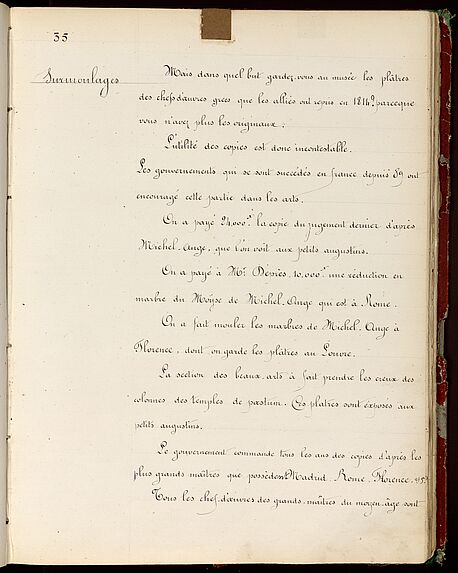 33
Surmoulages
Mais dans quel but gardez-vous au musée les plâtres
des chefs d'œuvres grecs que les alliés ont repris en 1814? parceque
vous n'avez plus les originaux.
L'utilité des copies est donc incontestable.
Les gouvernements qui se sont succédés en france depuis 89 ont
encouragé cette partie dans les arts.
On a payé 24,000f. la copie du jugement dernier d'après
Michel-Ange, que l'on voit aux petits augustins.
On a payé à Mr. Desprès, 10,000f. une réduction en
marbre du Moïse de Michel-Ange qui est à Rome.
On a fait mouler les marbres de Michel-Ange à
Florence, dont on garde les plâtres au Louvre.
La section des beaux-arts à fait prendre les creux des
colonnes des temples de pœstum. Ces platres sont exposés aux
petits augustins.
Le gouvernement commande tous les ans des copies d'après les
plus grands maîtres que possèdent Madrid, Rome, Florence,
Tous les chefs-d'œuvres des grands-maîtres du moyen-âge sont